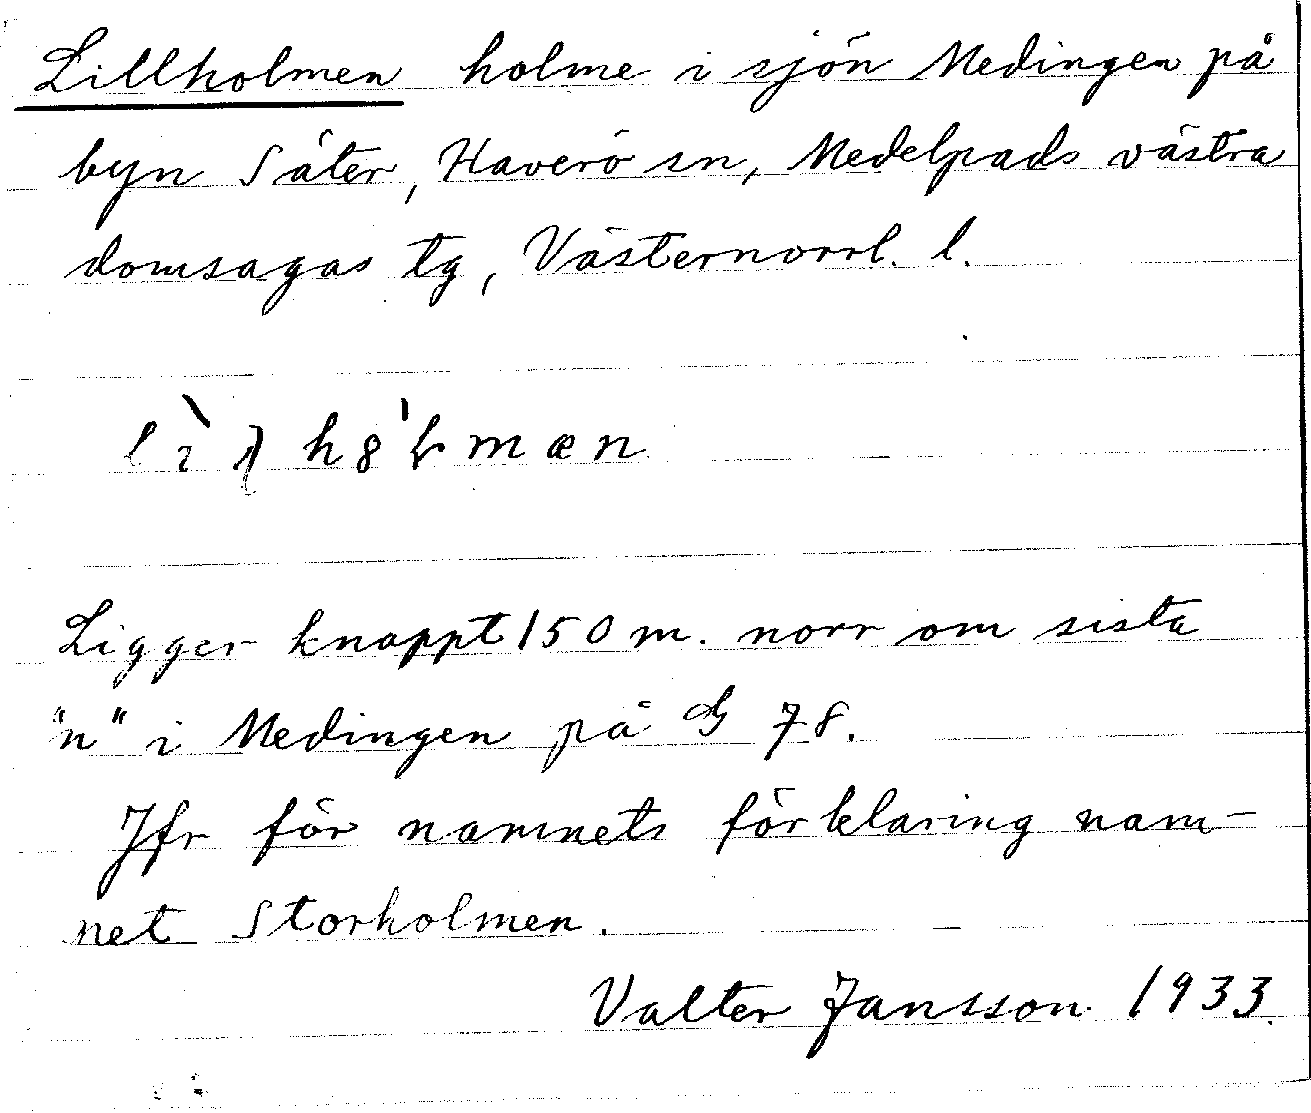 Lillholmen holme i sjön Medingen på
byn Säter, Haverö sn, Medelpads västra
domsagas tg, Västernorrl. l.
Ligger knappt 150 m. norr om sista
"n" i Medingen på G 78.
Jfr för namnets förklaring nam-
net Storholmen.
Valter Jansson 1933.